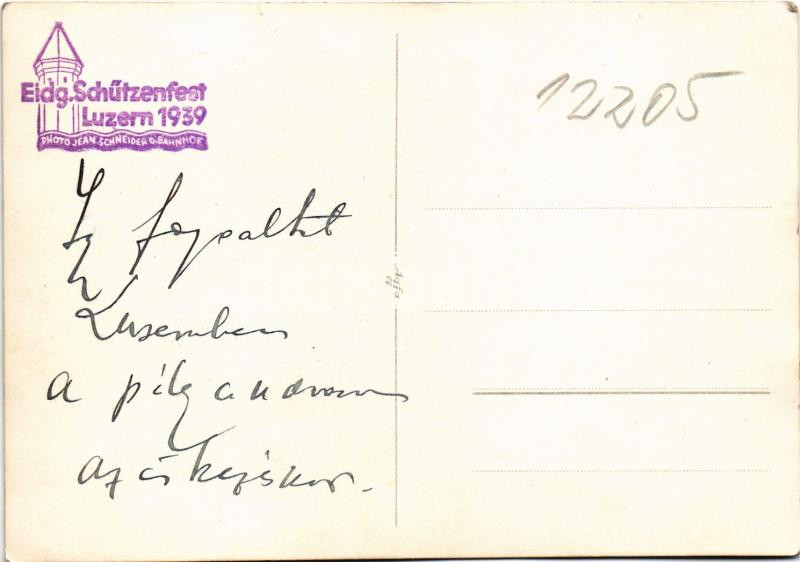 Eidg. Schützenfest
Luzern 1939
PHOTO JEAN SCHNEIDER B. BAHNHOF
12205
Így fogadtak
Luzernben
a pályaudvaron
az érkezéskor.